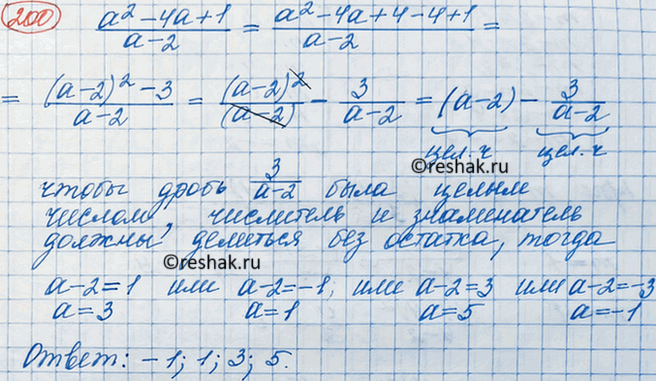 200 (a²-4a+1)/(a-2) = (a²-4a+4-4+1)/(a-2) =
= ((a-2)²-3)/(a-2) = (a-2)²/(a-2) - 3/(a-2) = (a-2) - 3/(a-2)
цел. ч цел. ч
©reshak.ru
чтобы дробь 3/(a-2) была целым
числом, числитель и знаменатель
должны делиться без остатка, тогда
©reshak.ru
a-2=1 или a-2=-1, или a-2=3 или a-2=-3
a=3 a=1 a=5 a=-1
Ответ: -1; 1; 3; 5.